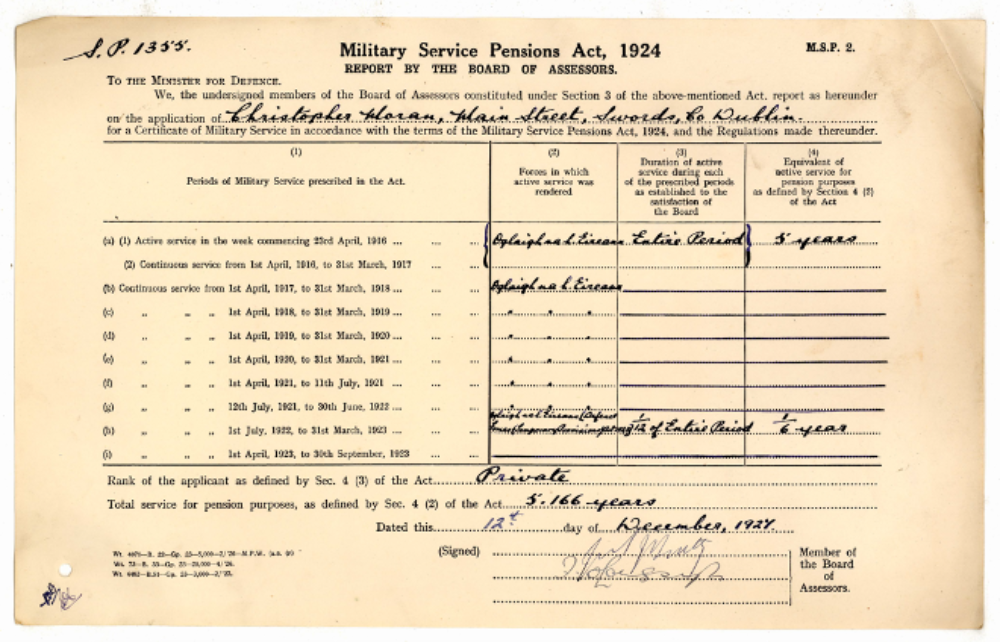 S.P. 1355.
Military Service Pensions Act, 1924
M.S.P. 2.
REPORT BY THE BOARD OF ASSESSORS.
TO THE MINISTER FOR DEFENCE.
We, the undersigned members of the Board of Assessors constituted under Section 3 of the above-mentioned Act, report as hereunder
on the application of Christopher Moran, Main Street, Swords, Co Dublin.
for a Certificate of Military Service in accordance with the terms of the Military Service Pensions Act, 1924, and the Regulations made thereunder.
(1)
Periods of Military Service prescribed in the Act.
(2)
Forces in which
active service was
rendered
(3)
Duration of active
service during each
of the prescribed periods
as established to the
satisfaction of
the Board
(4)
Equivalent of
active service for
pension purposes
as defined by Section 4 (2)
of the Act
(a) (1) Active service in the week commencing 23rd April, 1916 ... ... ... Oglaigh na h. Eireann Entire Period 5 years
(2) Continuous service from 1st April, 1916, to 31st March, 1917 ... ...
(b) Continuous service from 1st April, 1917, to 31st March, 1918 ... ... ... Oglaigh na h. Eireann
(c) „ „ „ 1st April, 1918, to 31st March, 1919 ... ... ... „ „ „
(d) „ „ „ 1st April, 1919, to 31st March, 1920 ... ... ... „ „ „
(e) „ „ „ 1st April, 1920, to 31st March, 1921 ... ... ... „ „ „
(f) „ „ „ 1st April, 1921, to 11th July, 1921 ... ... ... „ „ „
(g) „ „ „ 12th July, 1921, to 30th June, 1922 ... ... ...
(h) „ „ „ 1st July, 1922, to 31st March, 1923 ... ... ... Oglaigh na h Eireann (Defence Forces (Temporary Provisions) Act 1/12 of Entire Period 1/6 year
(i) „ „ „ 1st April, 1923, to 30th September, 1923 ... ...
Rank of the applicant as defined by Sec. 4 (3) of the Act Private
Total service for pension purposes, as defined by Sec. 4 (2) of the Act 5.166 years
Dated this 12th day of December, 1927.
(Signed)
Member of
the Board
of
Assessors.